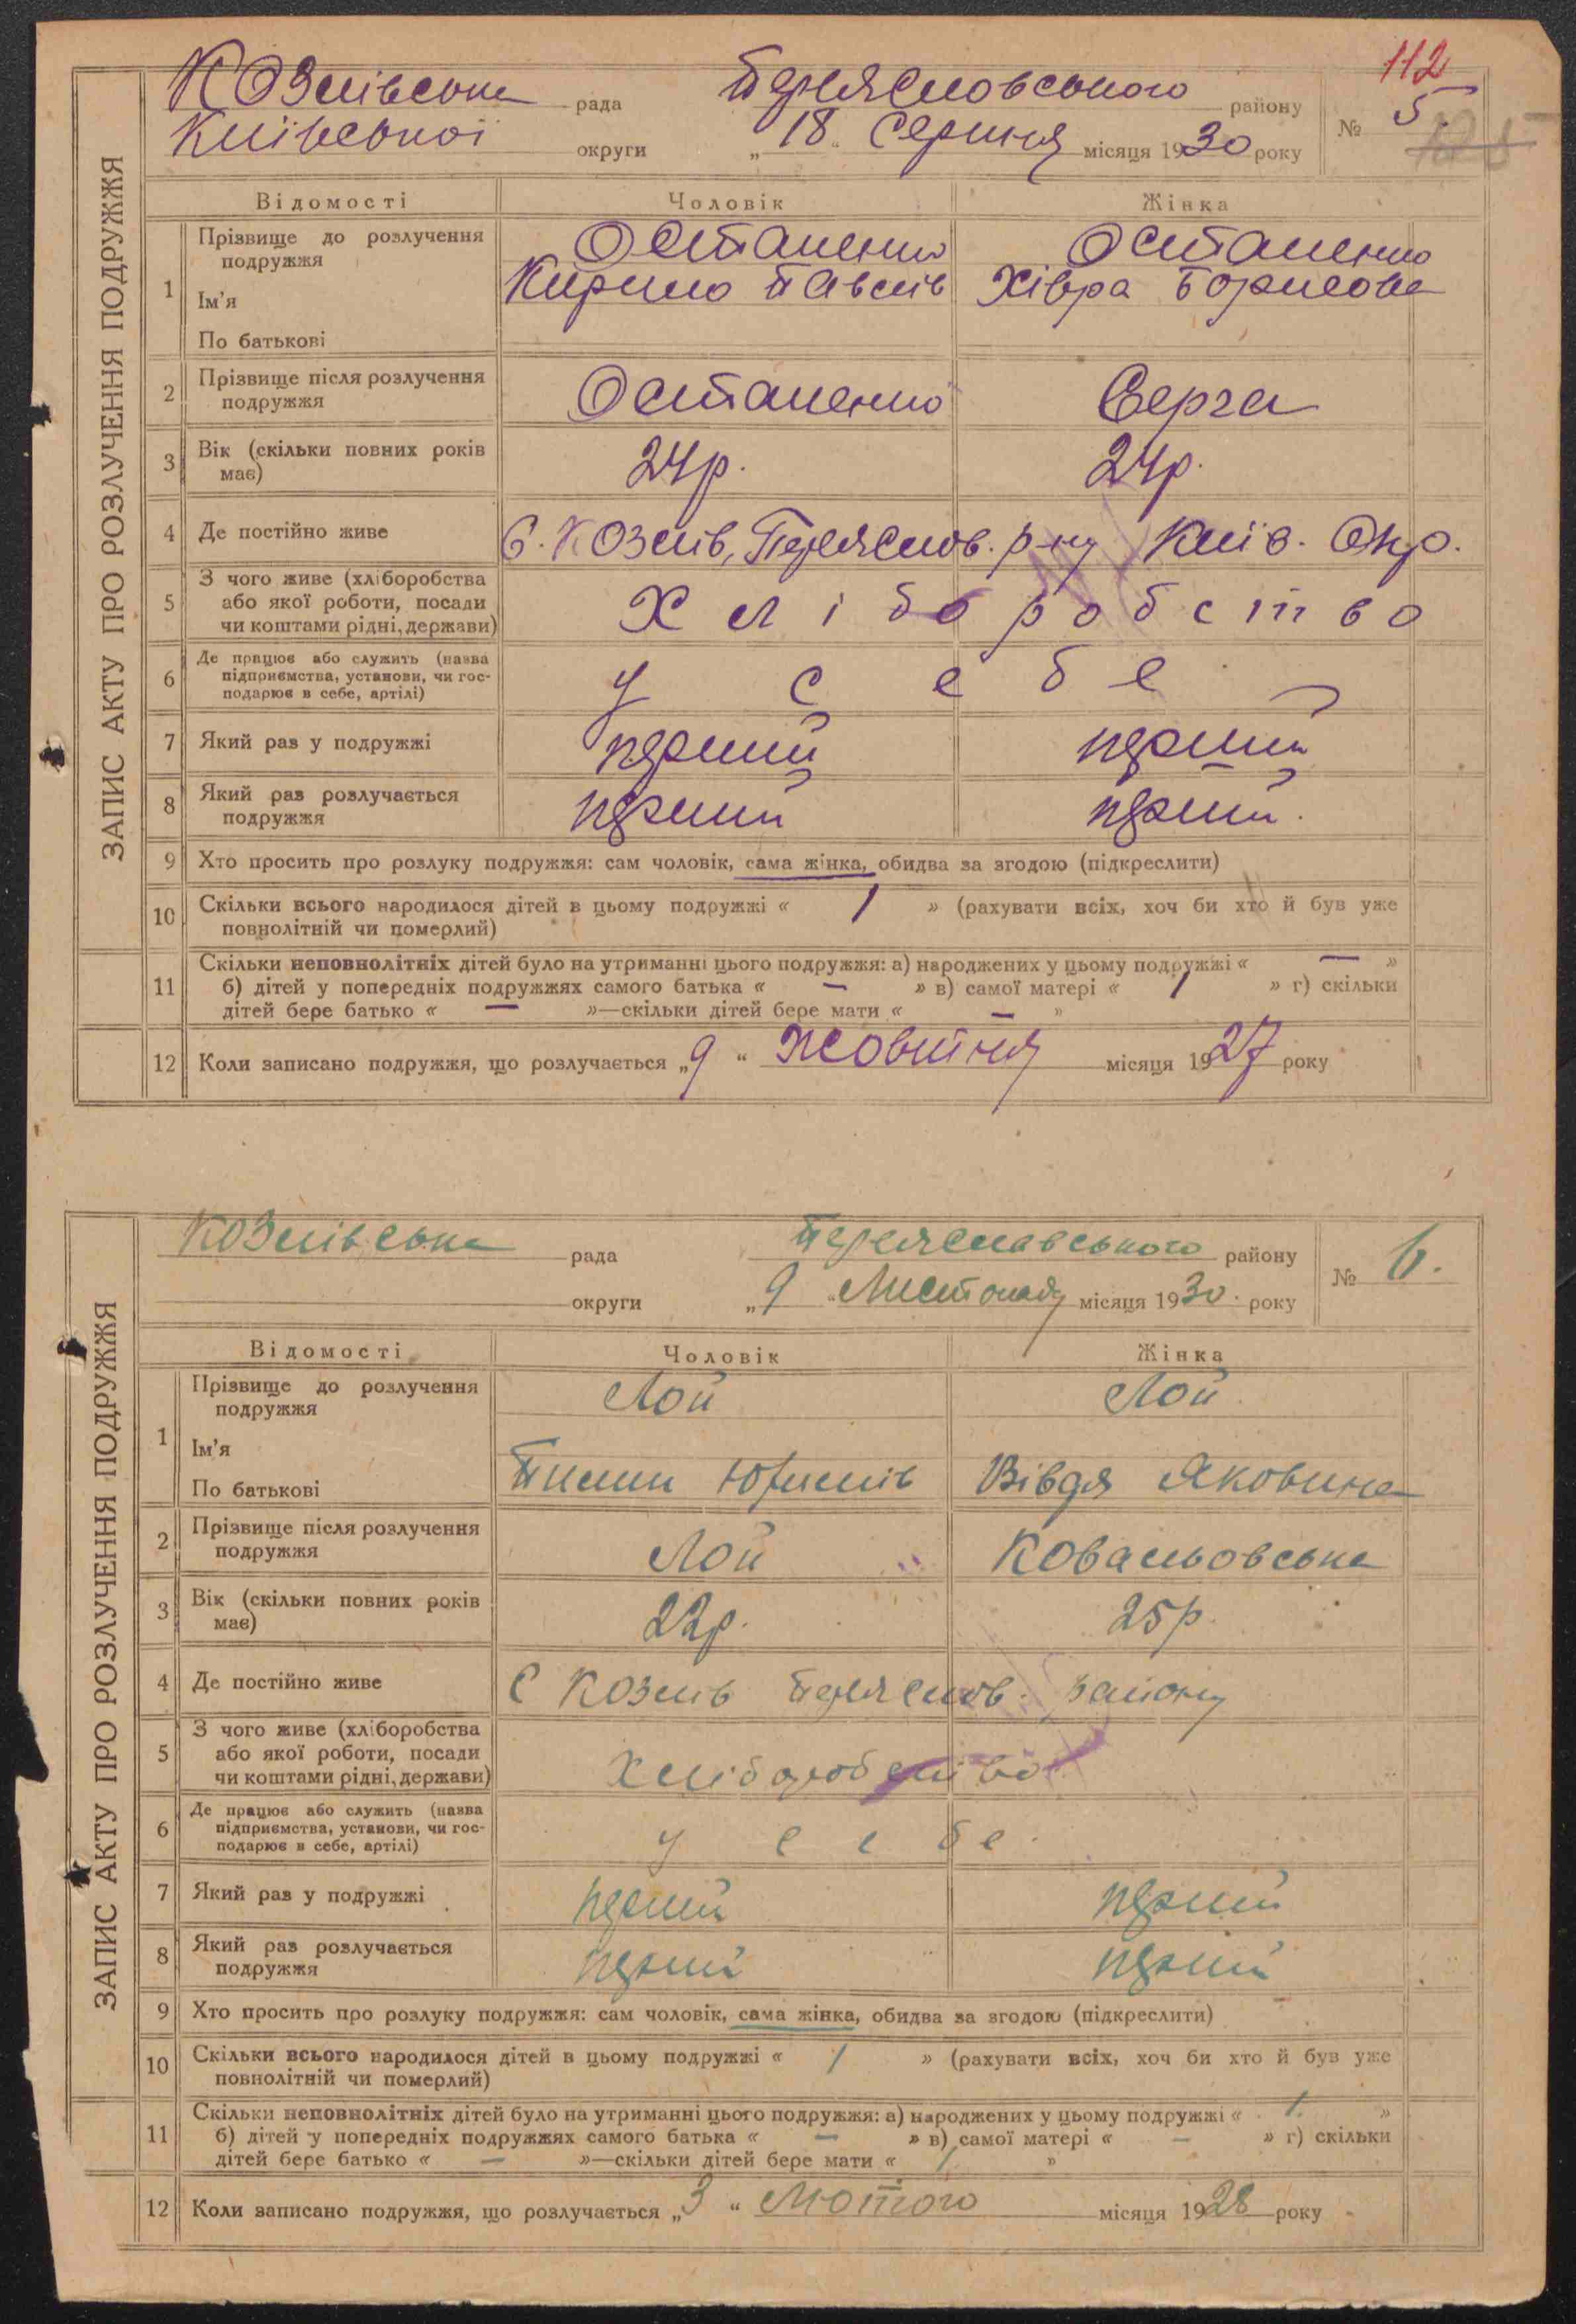 112
Козлівська рада Переясловського району
Київської округи „18“ Серпня місяця 1930 року № 5.
ЗАПИС АКТУ ПРО РОЗЛУЧЕННЯ ПОДРУЖЖЯ
Відомості Чоловік Жінка
1 Прізвище до розлучення подружжя Остапенко Остапенко
Ім'я Кирило Павлів Хівра Борисова
По батькові
2 Прізвище після розлучення подружжя Остапенко Серга
3 Вік (скільки повних років має) 24р. 24р.
4 Де постійно живе С. Козлів, Переяслов. р-ну Київ. Окр.
5 З чого живе (хліборобства або якої роботи, посади чи коштами рідні, держави) Хліборобство
6 Де працює або служить (назва підприємства, установи, чи господарює в себе, артілі) у себе
7 Який раз у подружжі перший перший
8 Який раз розлучається подружжя перший перший.
9 Хто просить про розлуку подружжя: сам чоловік, сама жінка, обидва за згодою (підкреслити)
10 Скільки всього народилося дітей в цьому подружжі « 1 » (рахувати всіх, хоч би хто й був уже
повнолітній чи померлий)
11 Скільки неповнолітніх дітей було на утриманні цього подружжя: а) народжених у цьому подружжі « — »
б) дітей у попередніх подружжях самого батька « — » в) самої матері « 1 » г) скільки
дітей бере батько « — »—скільки дітей бере мати « — »
12 Коли записано подружжя, що розлучається „9“ Жовтня місяця 1927 року
Козлівська рада Переяславського району
округи „9“ Листопаду місяця 1930. року № 6.
ЗАПИС АКТУ ПРО РОЗЛУЧЕННЯ ПОДРУЖЖЯ
Відомості Чоловік Жінка
1 Прізвище до розлучення подружжя Лой Лой
Ім'я
По батькові Пилип Юхимів Вівдя Яковина
2 Прізвище після розлучення подружжя Лой Ковальовська
3 Вік (скільки повних років має) 22р. 25р.
4 Де постійно живе С Козлів Переяслов. району
5 З чого живе (хліборобства або якої роботи, посади чи коштами рідні, держави) Хліборобство
6 Де працює або служить (назва підприємства, установи, чи господарює в себе, артілі) у себе
7 Який раз у подружжі перший перший
8 Який раз розлучається подружжя перший перший
9 Хто просить про розлуку подружжя: сам чоловік, сама жінка, обидва за згодою (підкреслити)
10 Скільки всього народилося дітей в цьому подружжі « 1 » (рахувати всіх, хоч би хто й був уже
повнолітній чи померлий)
11 Скільки неповнолітніх дітей було на утриманні цього подружжя: а) народжених у цьому подружжі « 1. »
б) дітей у попередніх подружжях самого батька « — » в) самої матері « — » г) скільки
дітей бере батько « — »—скільки дітей бере мати « 1 »
12 Коли записано подружжя, що розлучається „3“ Лютого місяця 1928 року